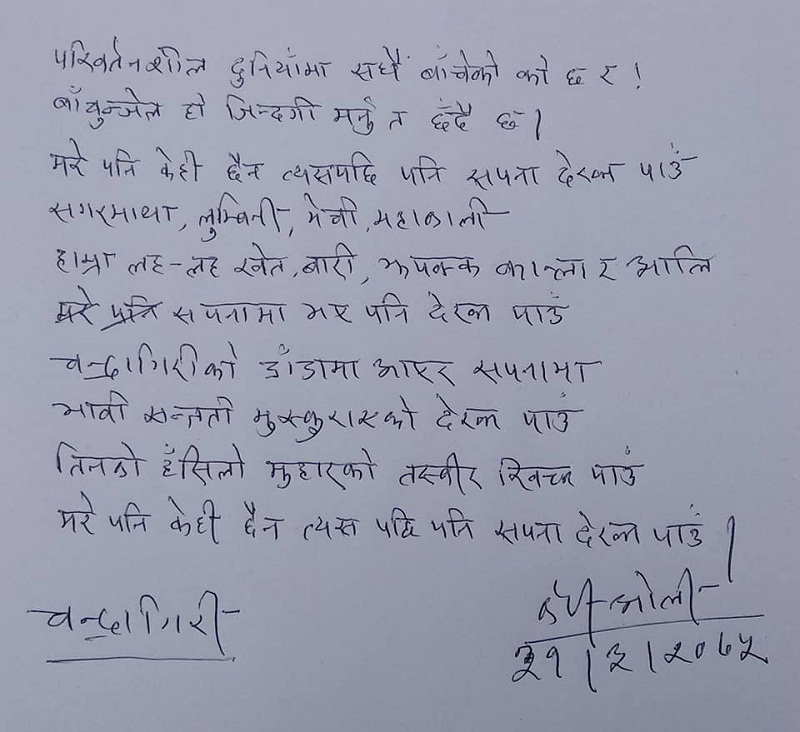 परिवर्तनशील दुनियाँमा सधैँ बाँचेको को छ र !
बाँचुन्जेल हो जिन्दगी मर्नु त छँदै छ।
मरे पनि केही छैन त्यसपछि पनि सपना देख्न पाउँ
सगरमाथा, लुम्बिनी, मेची, महाकाली
हाम्रा लह-लह खेत, बारी, झपक्क कान्ला र आलि
मरे पनि सपनामा भए पनि देख्न पाउँ
चन्द्रागिरीको डाँडामा आएर सपनामा
भावी सन्तती मुस्कुराएको देख्न पाउँ
तिनको हँसिलो मुहारको तस्वीर खिच्न पाउँ
मरे पनि केही छैन त्यस पछि पनि सपना देख्न पाउँ।
चन्द्रागिरी
केपी ओली
३१।३।२०७५